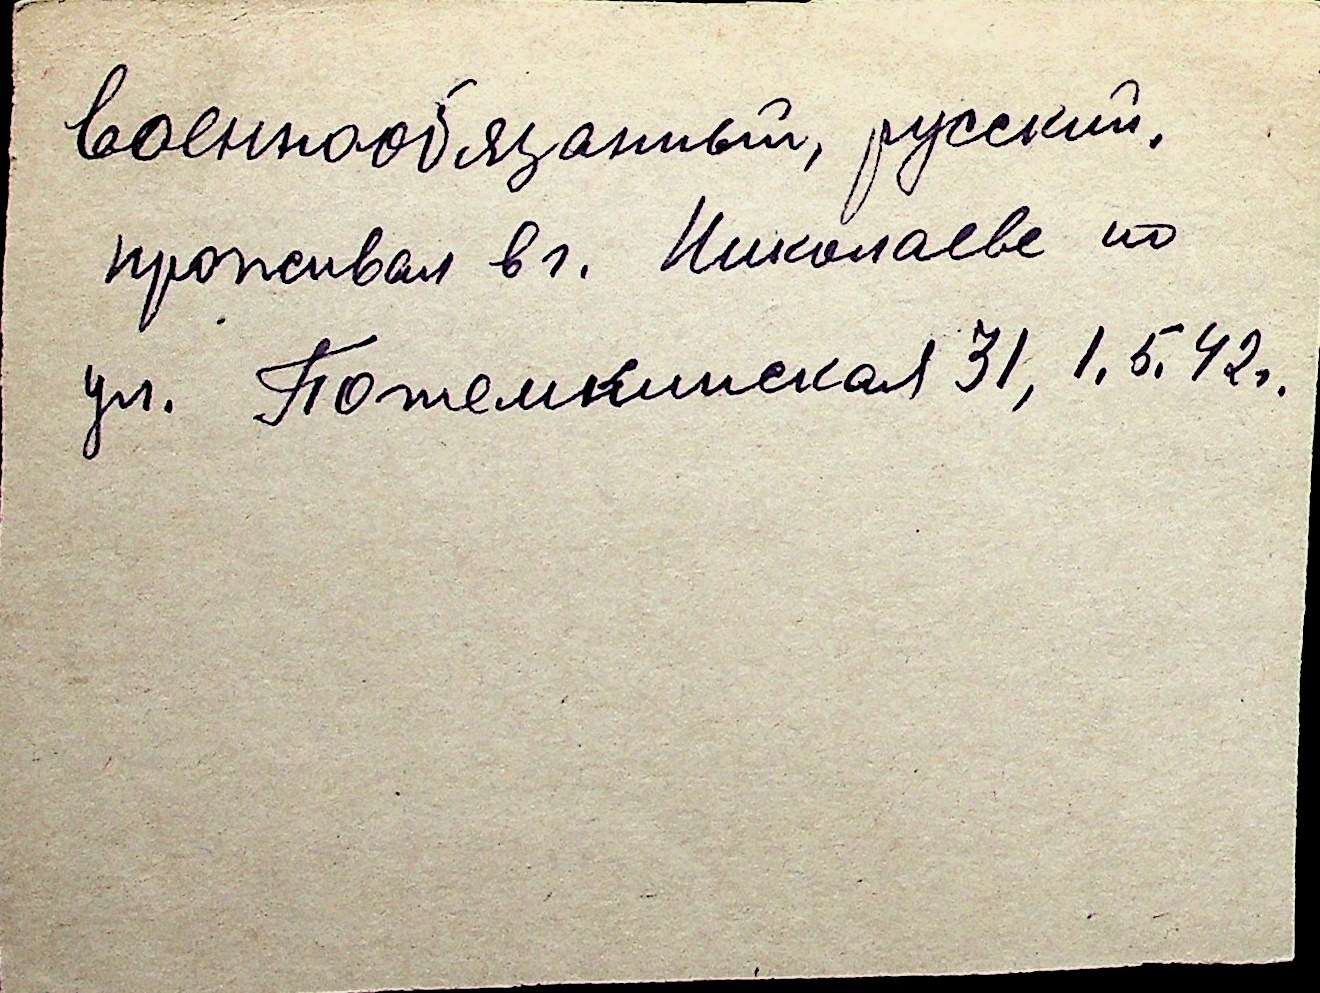 военнообязанный, русский.
проживал в г. Николаеве по
ул. Потемкинская 31, 1.5.42г.